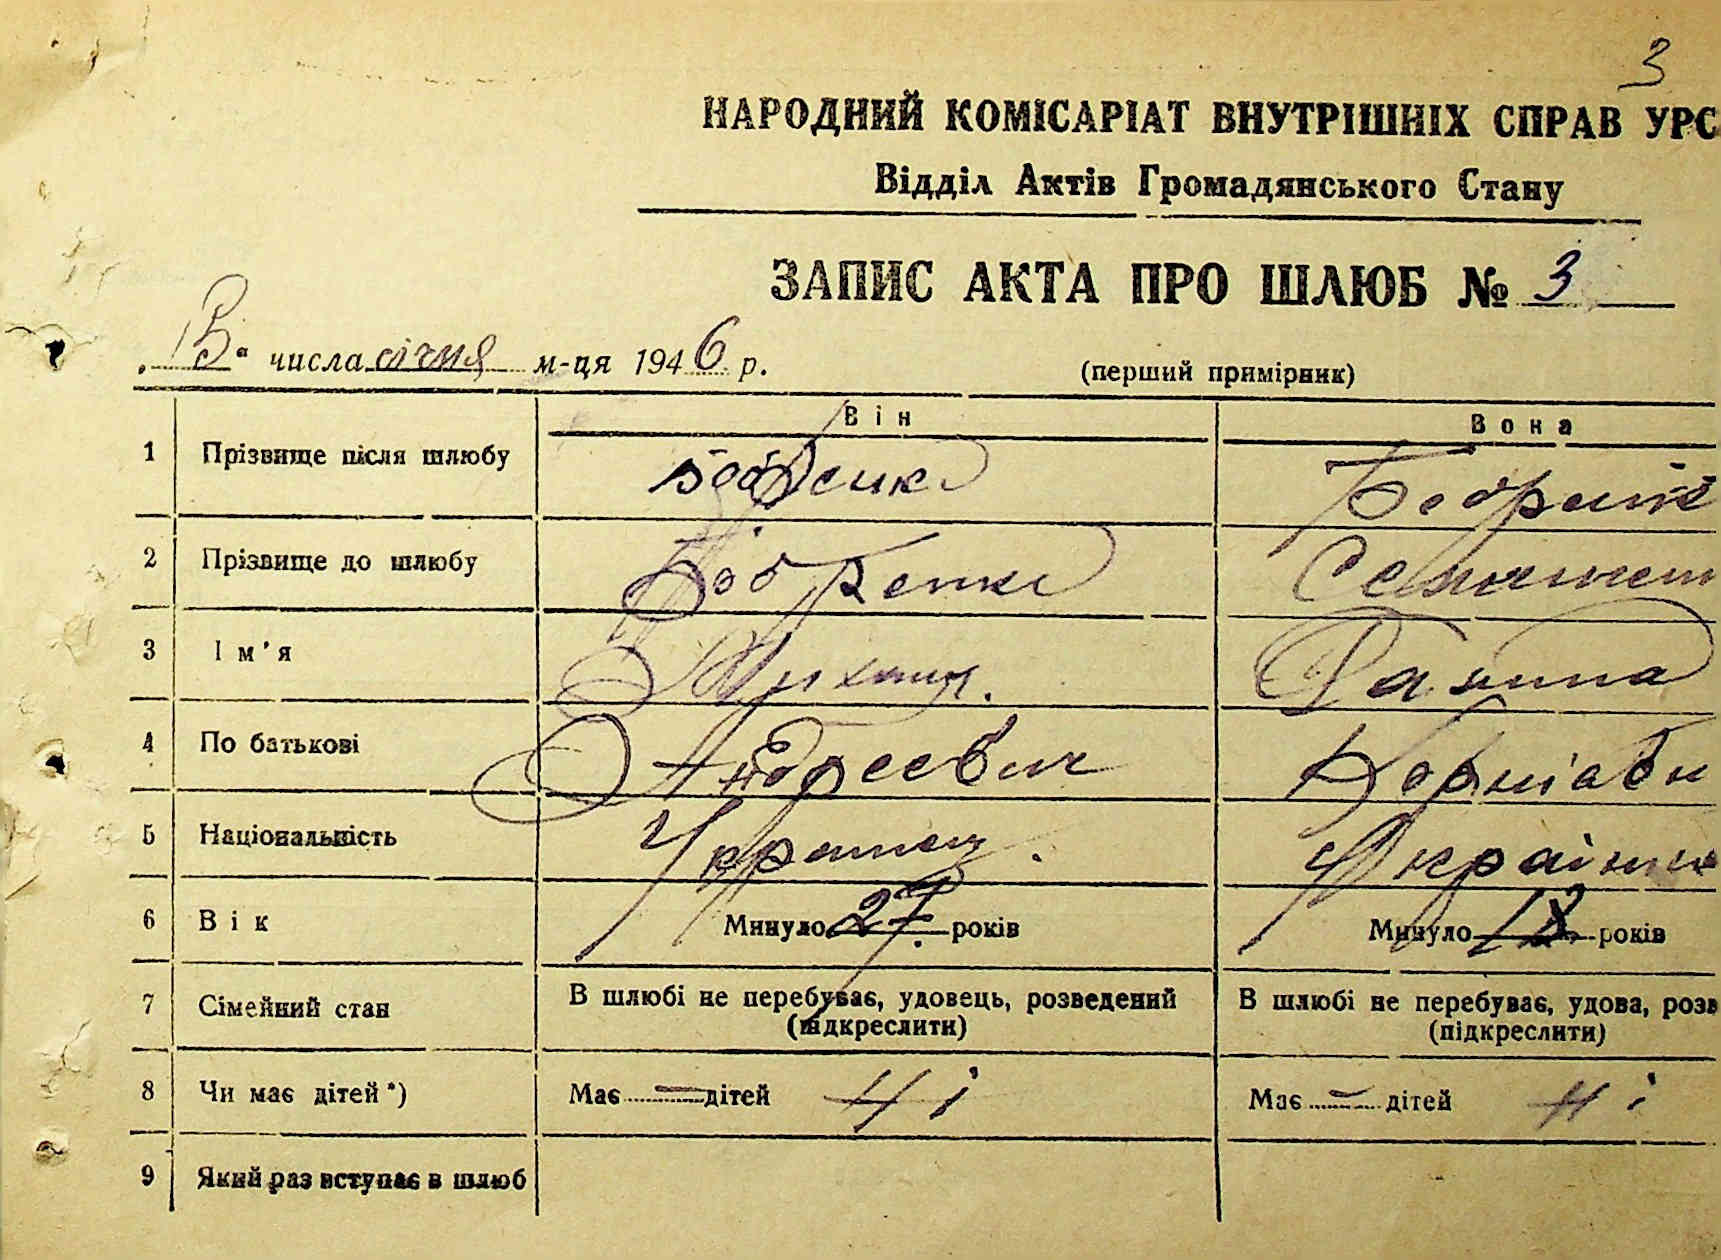 3
НАРОДНИЙ КОМІСАРІАТ ВНУТРІШНІХ СПРАВ УРС
Відділ Актів Громадянського Стану
ЗАПИС АКТА ПРО ШЛЮБ № 3
числа січня м-ця 1946 р.
(перший примірник)
Він Вона
1 Прізвище після шлюбу
2 Прізвище до шлюбу Бобренко
3 Ім'я Михаил. Галина
4 По батькові Андреевич
5 Національність
6 Вік Минуло 27 років Минуло 18 років
7 Сімейний стан В шлюбі не перебуває, удовець, розведений В шлюбі не перебуває, удова, розв
(підкреслити) (підкреслити)
8 Чи має дітей*) Має — дітей Ні Має — дітей Ні
9 Який раз вступає в шлюб